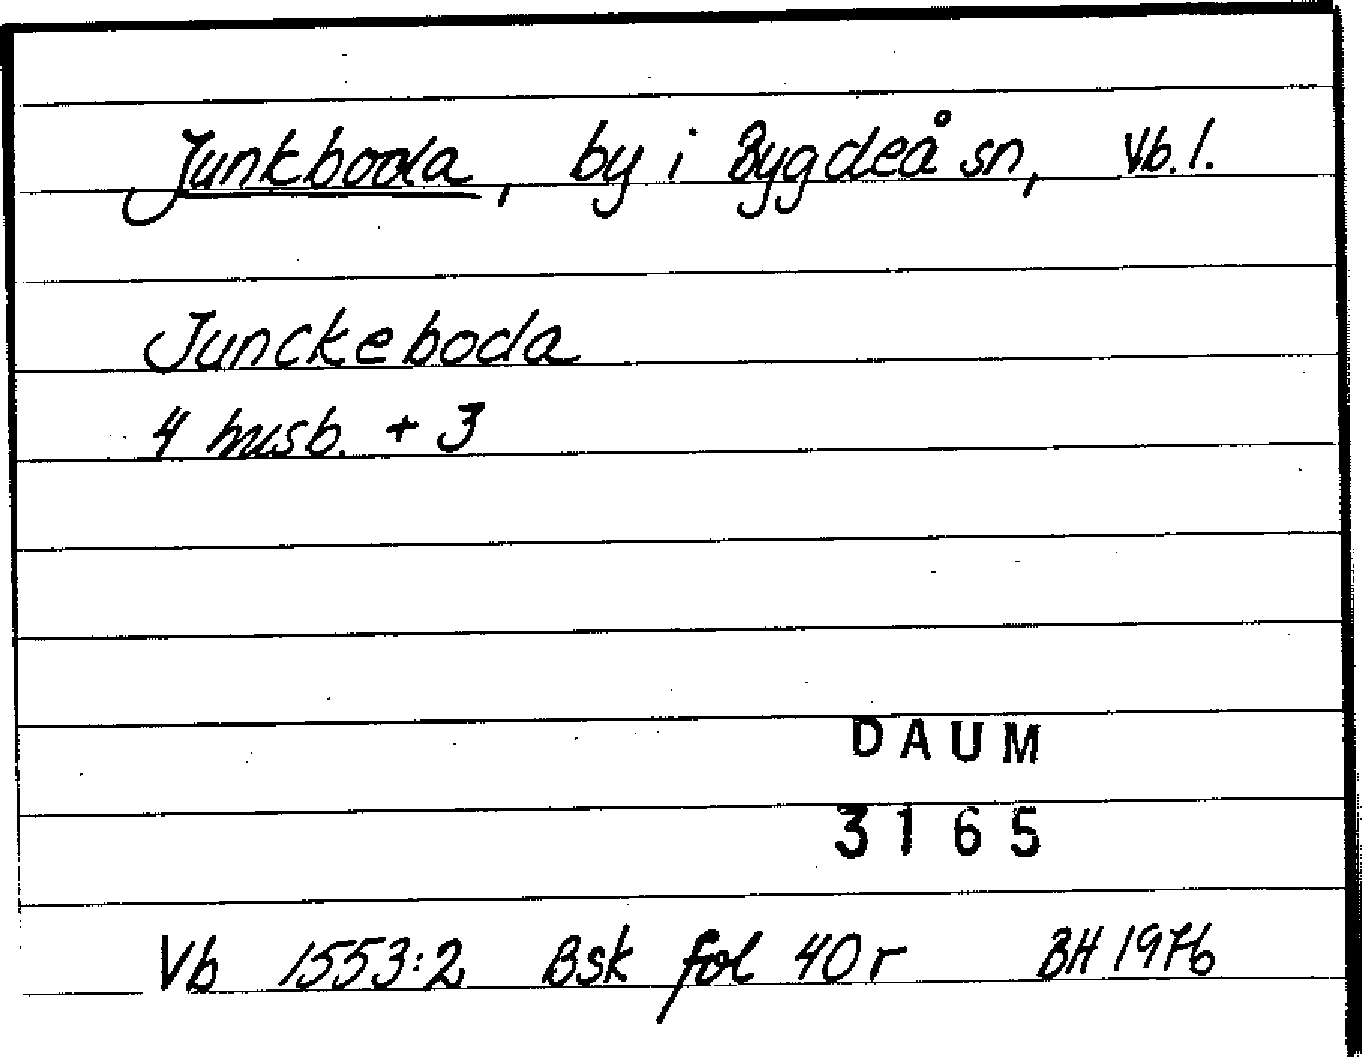 Junkboda, by i Bygdeå sn, Vb.l.
Junckeboda
4 husb. + 3
DAUM
3165
Vb 1553:2 Bsk fol 40r BH 1976